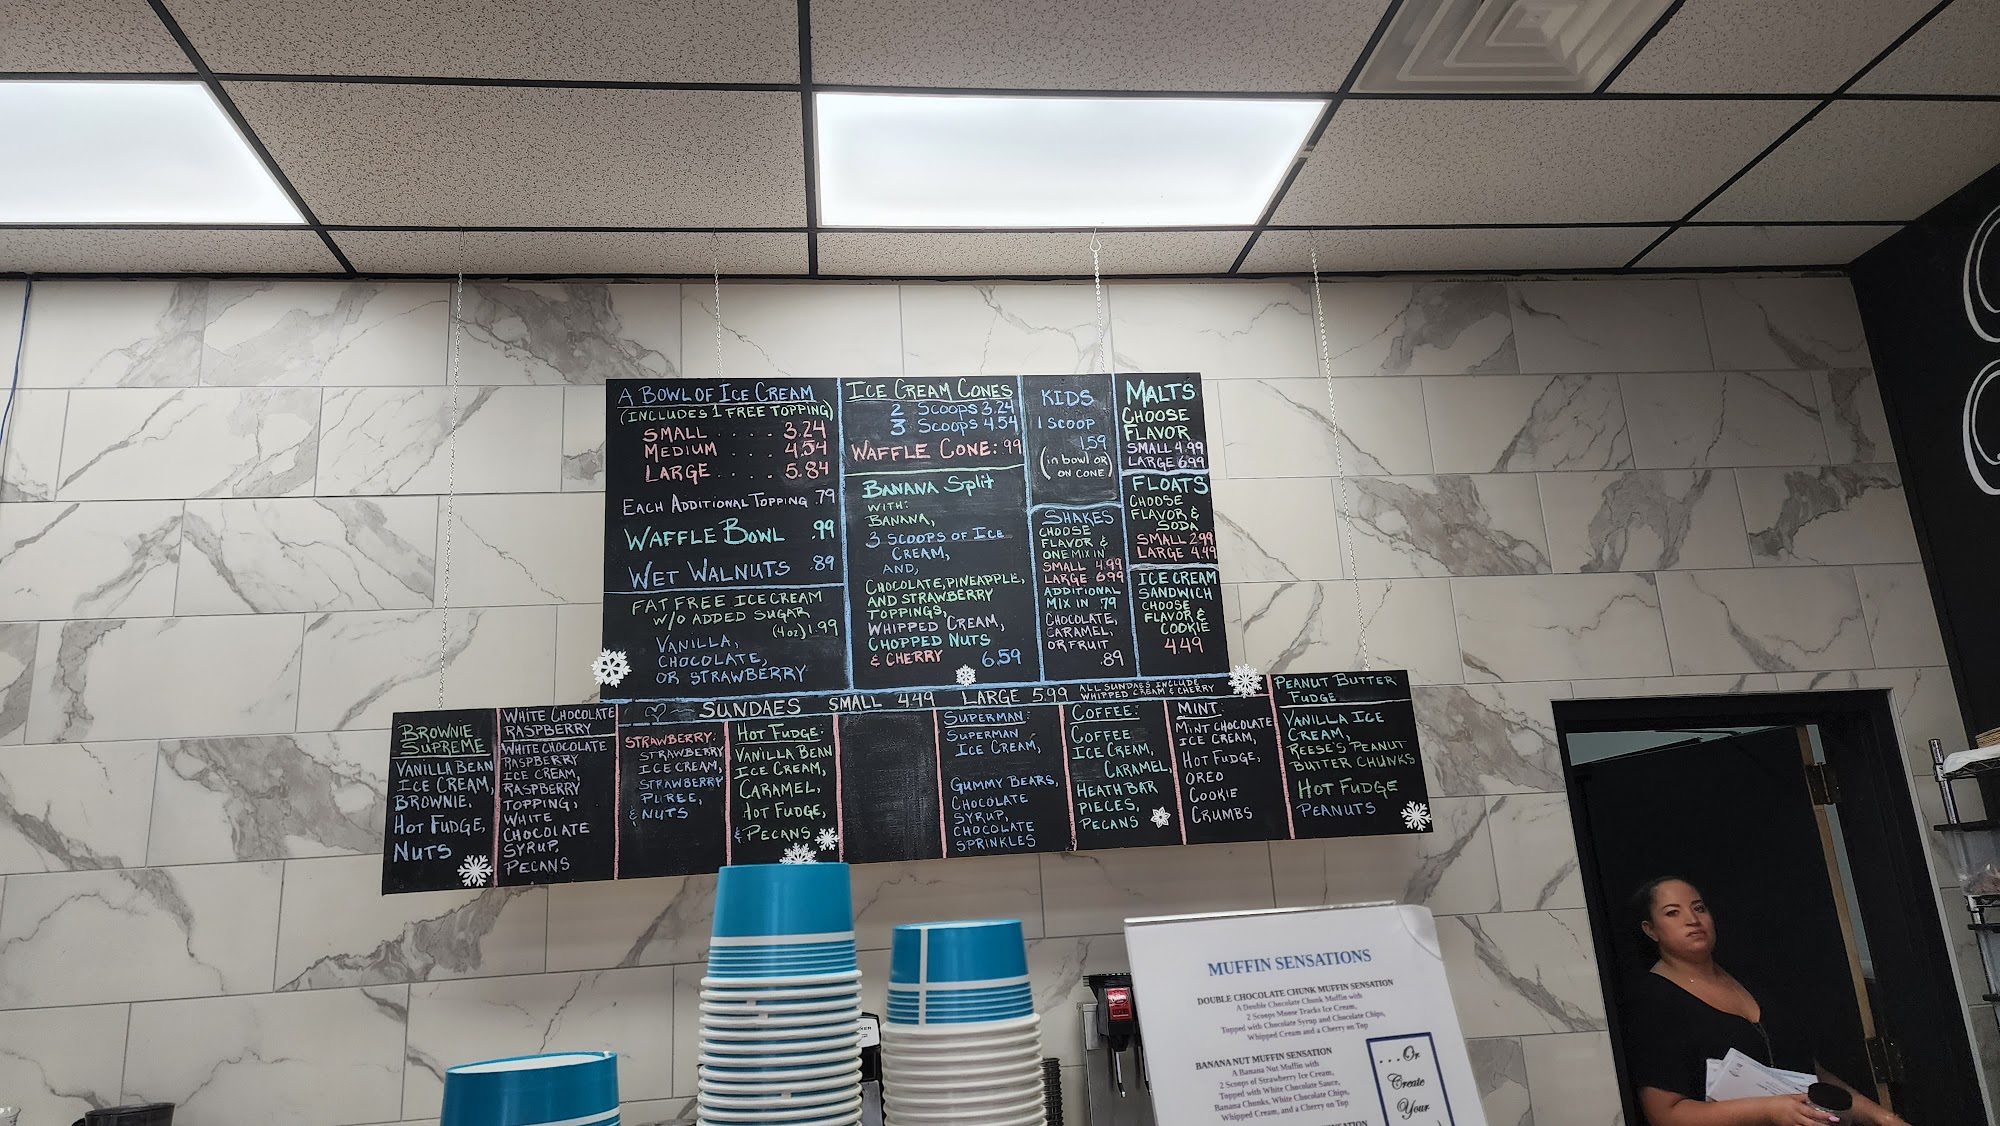 A BOWL OF ICE CREAM
(INCLUDES 1 FREE TOPPING)
SMALL .... 3.24
MEDIUM .... 4.54
LARGE ... 5.84
EACH ADDITIONAL TOPPING .79
WAFFLE BOWL .99
WET WALNUTS .89
FAT FREE ICE CREAM
W/O ADDED SUGAR
(4oz) 1.99
VANILLA,
CHOCOLATE,
OR STRAWBERRY
ICE CREAM CONES
2 SCOOPS 3.24
3 SCOOPS 4.54
WAFFLE CONE: .99
BANANA Split
WITH:
BANANA,
3 SCOOPS OF ICE
CREAM,
AND,
CHOCOLATE, PINEAPPLE,
AND STRAWBERRY
TOPPINGS,
WHIPPED CREAM,
CHOPPED NUTS
& CHERRY 6.59
KIDS
1 SCOOP
1.59
(in bowl or
ON CONE)
SHAKES
CHOOSE
FLAVOR &
ONE MIX IN
SMALL 4.99
LARGE 6.99
ADDITIONAL
MIX IN .79
CHOCOLATE,
CARAMEL,
OR FRUIT
.89
MALTS
CHOOSE
FLAVOR
SMALL 4.99
LARGE 6.99
FLOATS
CHOOSE
FLAVOR &
SODA
SMALL 2.99
LARGE 4.49
ICE CREAM
SANDWICH
CHOOSE
FLAVOR &
COOKIE
4.49
SUNDAES SMALL 4.49 LARGE 5.99 ALL SUNDAES INCLUDE
WHIPPED CREAM & CHERRY
BROWNIE
SUPREME
VANILLA BEAN
ICE CREAM,
BROWNIE,
HOT FUDGE,
NUTS
WHITE CHOCOLATE
RASPBERRY
WHITE CHOCOLATE
RASPBERRY
ICE CREAM,
RASPBERRY
TOPPING,
WHITE
CHOCOLATE
SYRUP,
PECANS
STRAWBERRY:
STRAWBERRY
ICE CREAM,
STRAWBERRY
PUREE,
& NUTS
HOT FUDGE:
VANILLA BEAN
ICE CREAM,
CARAMEL,
HOT FUDGE,
& PECANS
SUPERMAN:
SUPERMAN
ICE CREAM,
GUMMY BEARS,
CHOCOLATE
SYRUP,
CHOCOLATE
SPRINKLES
COFFEE:
COFFEE
ICE CREAM,
CARAMEL,
HEATH BAR
PIECES,
PECANS
MINT:
MINT CHOCOLATE
ICE CREAM,
HOT FUDGE,
OREO
COOKIE
CRUMBS
PEANUT BUTTER
FUDGE
VANILLA ICE
CREAM,
REESE'S PEANUT
BUTTER CHUNKS
HOT FUDGE
PEANUTS
MUFFIN SENSATIONS
DOUBLE CHOCOLATE CHUNK MUFFIN SENSATION
A Double Chocolate Chunk Muffin with
2 Scoops Moose Tracks Ice Cream,
Topped with Chocolate Syrup and Chocolate Chips,
Whipped Cream and a Cherry on Top
BANANA NUT MUFFIN SENSATION
A Banana Nut Muffin with
2 Scoops of Strawberry Ice Cream,
Topped with White Chocolate Sauce,
Banana Chunks, White Chocolate Chips,
Whipped Cream, and a Cherry on Top
...Or
Create
Your